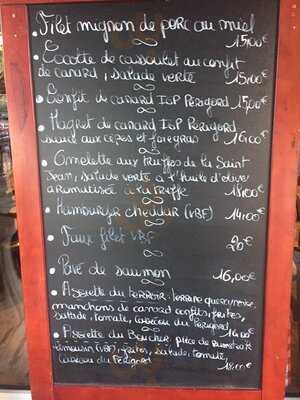 • Filet mignon de porc au miel
15,00€
• Cocotte de cassoulet au confit
de canard, salade verte 15,00€
• Confit de canard IGP Périgord 15,00€
• Magret de canard IGP Périgord
sauce aux cèpes et foie gras 16,00€
• Omelette aux truffes de la Saint
Jean, salade verte à l'huile d'olive
aromatisée à la truffe 18,00€
• Hamburger cheddar (VBF) 14,00€
• Faux filet VBF 20€
• Pavé de saumon 16,00€
• Assiette du terroir: terrine
manchons de canard confits, frites,
salade, tomate, cabécou du Périgord
• Assiette du Boucher, pièce de
limousin (VBF), frites, salade, tomate,
cabécou du Périgord 18,00€